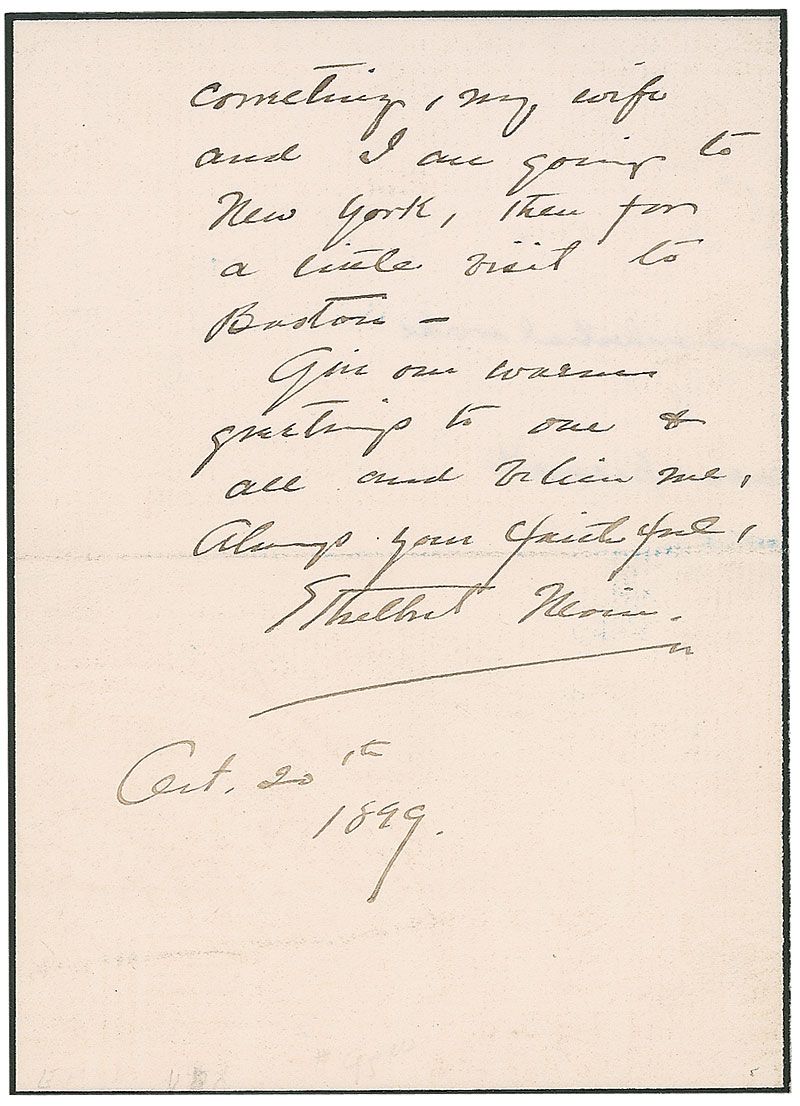 something, my wife
and I are going to
New York, then for
a little visit to
Boston –
Give our warm
greetings to one &
all and believe me,
Always your faithful,
Ethelbert Nevin.
Oct. 20th
1899.